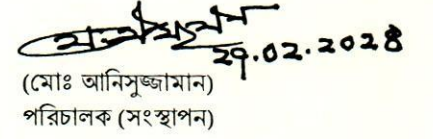 ২৭.০২.২০২৪
(মোঃ আনিসুজ্জামান)
পরিচালক (সংস্থাপন)